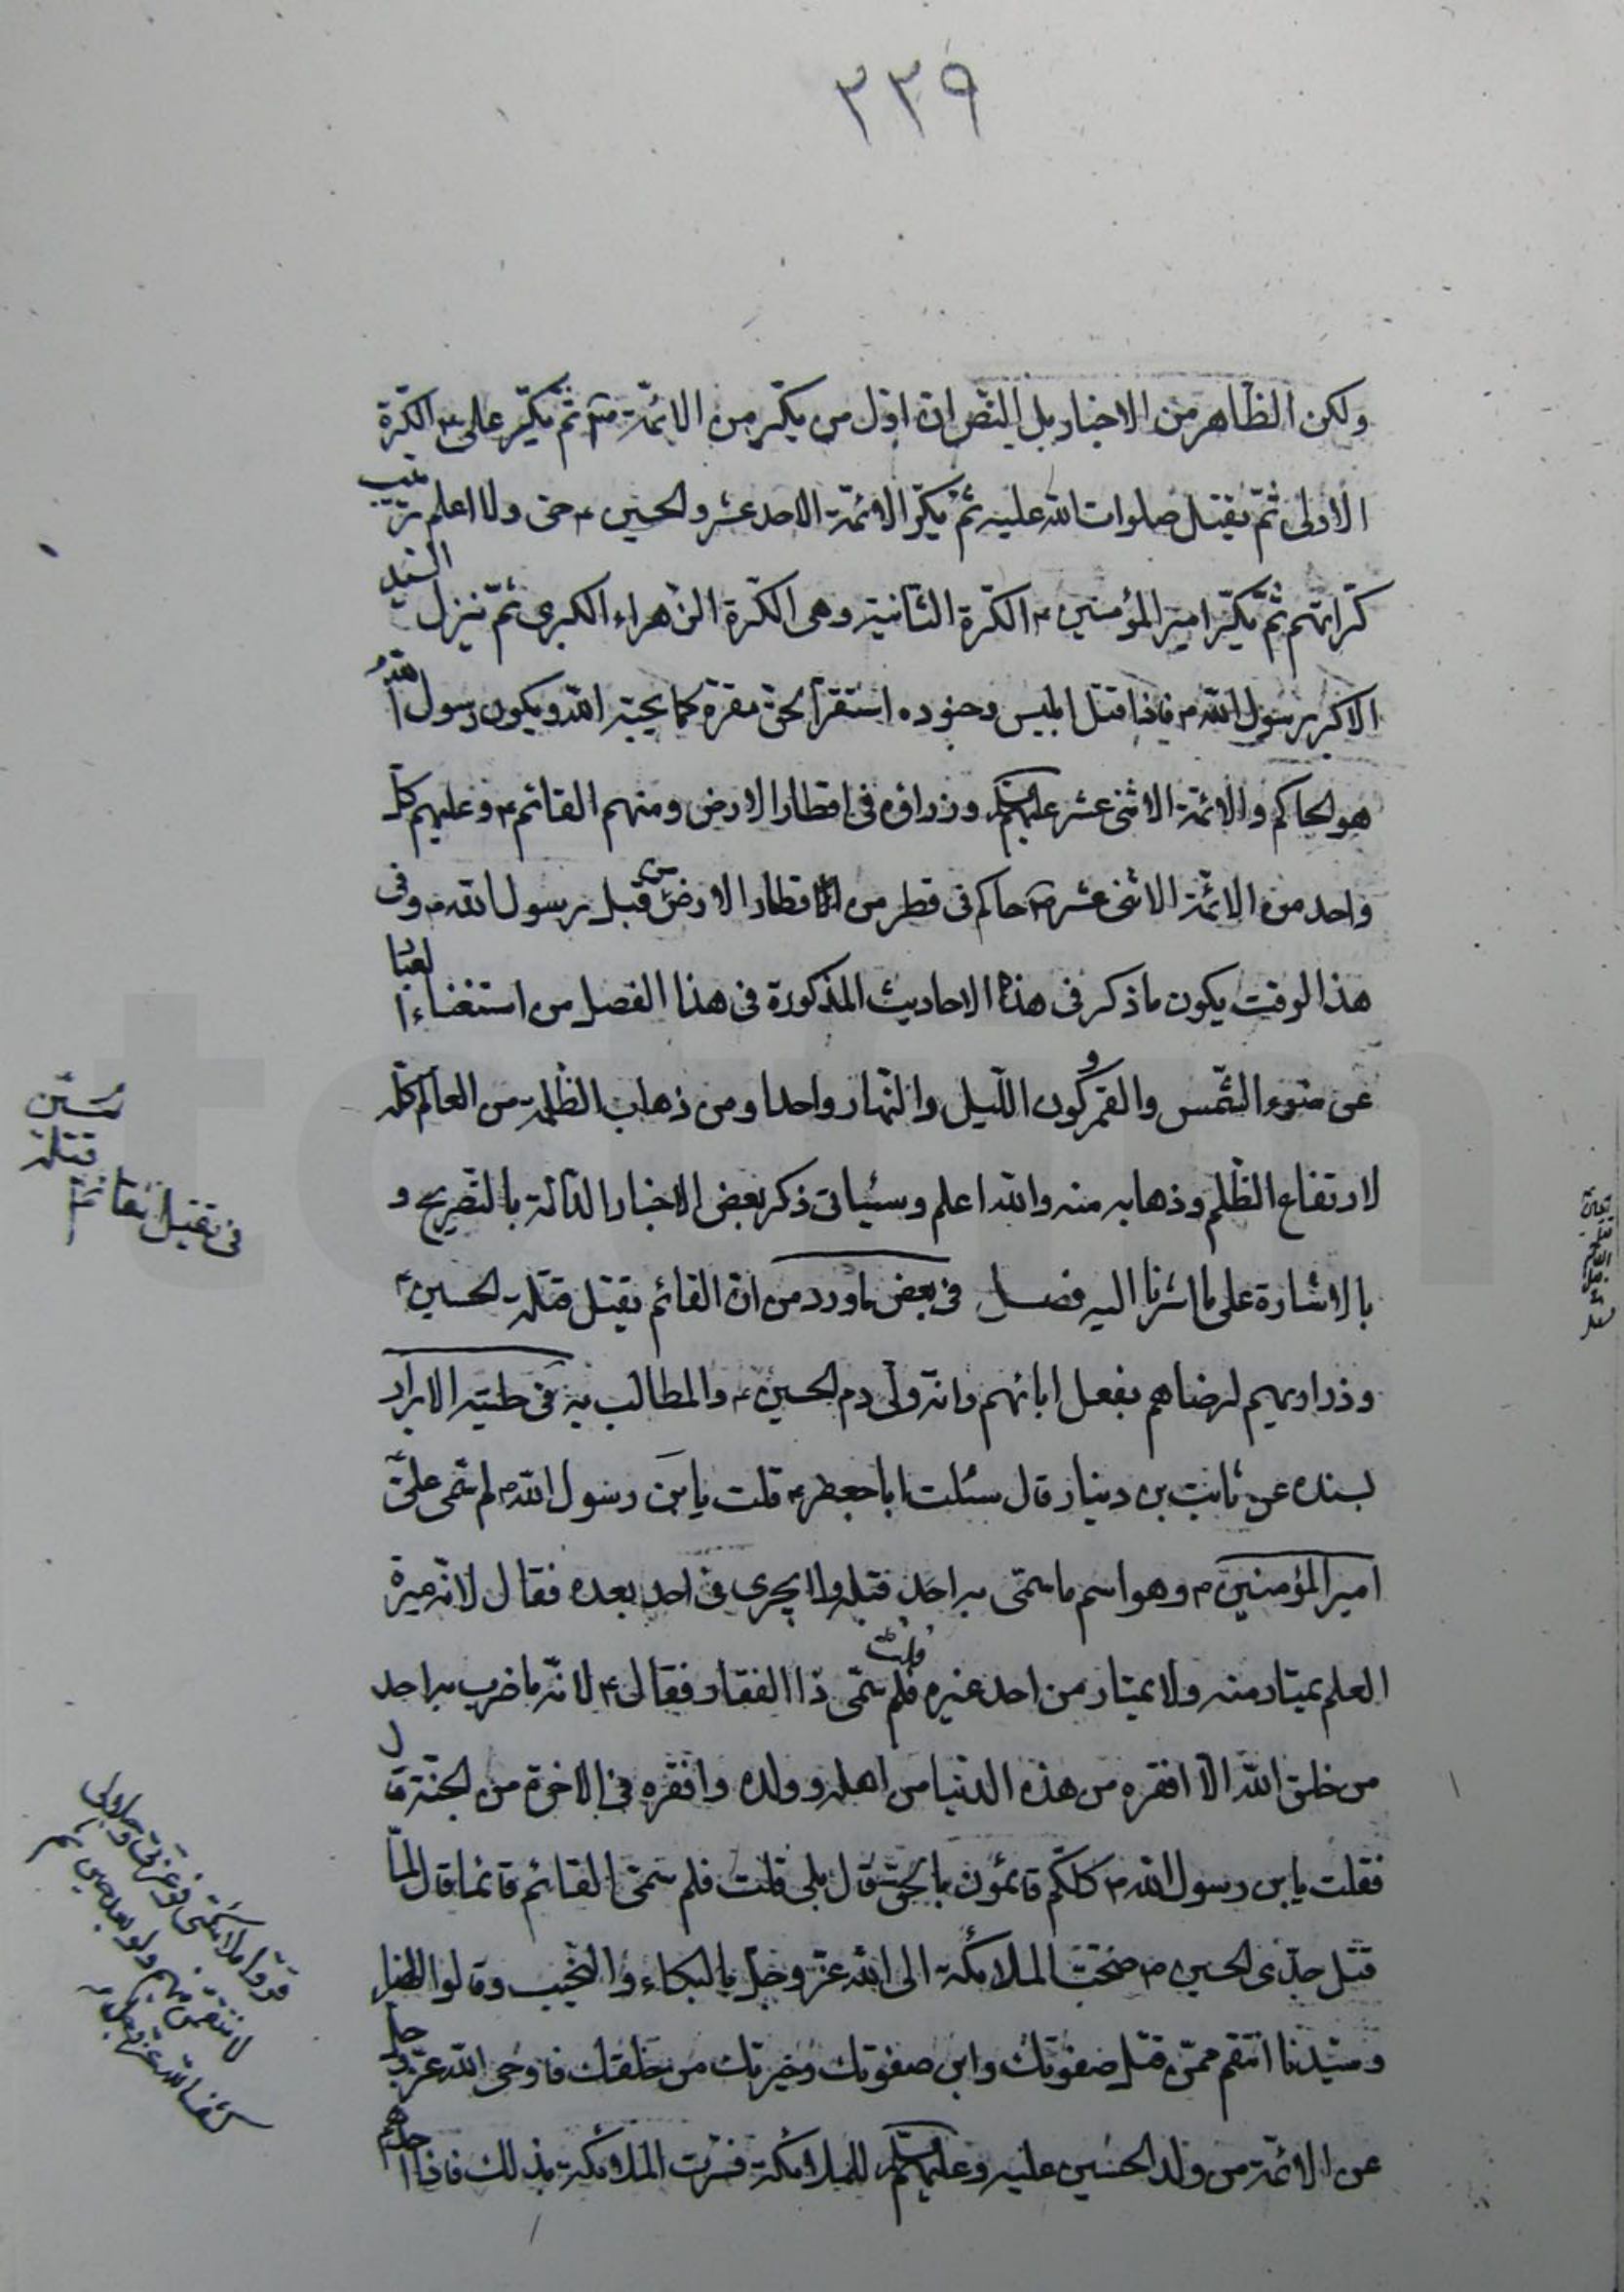 ٣٣٩
ولكن الظاهر من الاخبار بل النص ان اول من يكر من الائمة ثم يكر علي الكرة
الاولى ثم يقتل صلوات الله عليه ثم يكر الائمة الاحد عشر والحسين حتى ولا اعلم ترتيب
كراتهم ثم يكر امير المؤمنين الكرة الثانية وهى الكرة الزهراء الكبرى ثم ينزل السيد
الاكبر رسول الله فاذا قتل ابليس وجنوده استقر الحق مقره كما يحبه الله ويكون رسول الله
هو الحاكم والائمة الاثنى عشر عليهم السلام وزراؤه فى اقطار الارض ومنهم القائم وعليهم كل
واحد من الائمة الاثنى عشر حاكم فى قطر من اقطار الارض من قبل رسول الله وفى
هذا الوقت يكون ما ذكر فى هذه الاحاديث المذكورة فى هذا الفصل من استغناء العباد
عن ضوء الشمس والقمر وكون الليل والنهار واحدا ومن ذهاب الظلمة من العالم كله
لارتفاع الظلم وذهابه منه والله اعلم وسيأتى ذكر بعض الاخبار الدالة بالتصريح و
بالاشارة على ما اشرنا اليه فصل فى بعض ما ورد من ان القائم يقتل قتلة الحسين
وذراريهم لرضاهم بفعل ابائهم وانه ولى دم الحسين والمطالب به فى حلية الابرار
بسنده عن ثابت بن دينار قال سئلت ابا جعفر قلت يابن رسول الله لم سمى على
امير المؤمنين وهو اسم ما سمى به احد قبله ولا يجرى فى احد بعده فقال لانه ميرة
العلم يمتار منه ولا يمتار من احد غيره قلت فلم سمى ذا الفقار فقال لانه ما ضرب به احد
من خلق الله الا افقره من هذه الدنيا من اهله وولده وافقره فى الاخرة من الجنة قال
فقلت يابن رسول الله كلكم قائمون بالحق قال بلى قلت فلم سمى القائم قائما قال لما
قتل جدى الحسين ضجت الملائكة الى الله عز وجل بالبكاء والنحيب وقالوا الهنا
وسيدنا انتقم ممن قتل صفوتك وابن صفوتك وخيرتك من خلقك فاوحى الله عز وجل
قروا ملائكتى فوعزتى وجلالى
لانتقمن منهم ولو بعد حين ثم
كشف الله عز وجل
عن الائمة من ولد الحسين عليه وعليهم السلام للملائكة فسرت الملائكة بذلك فاذا احدهم